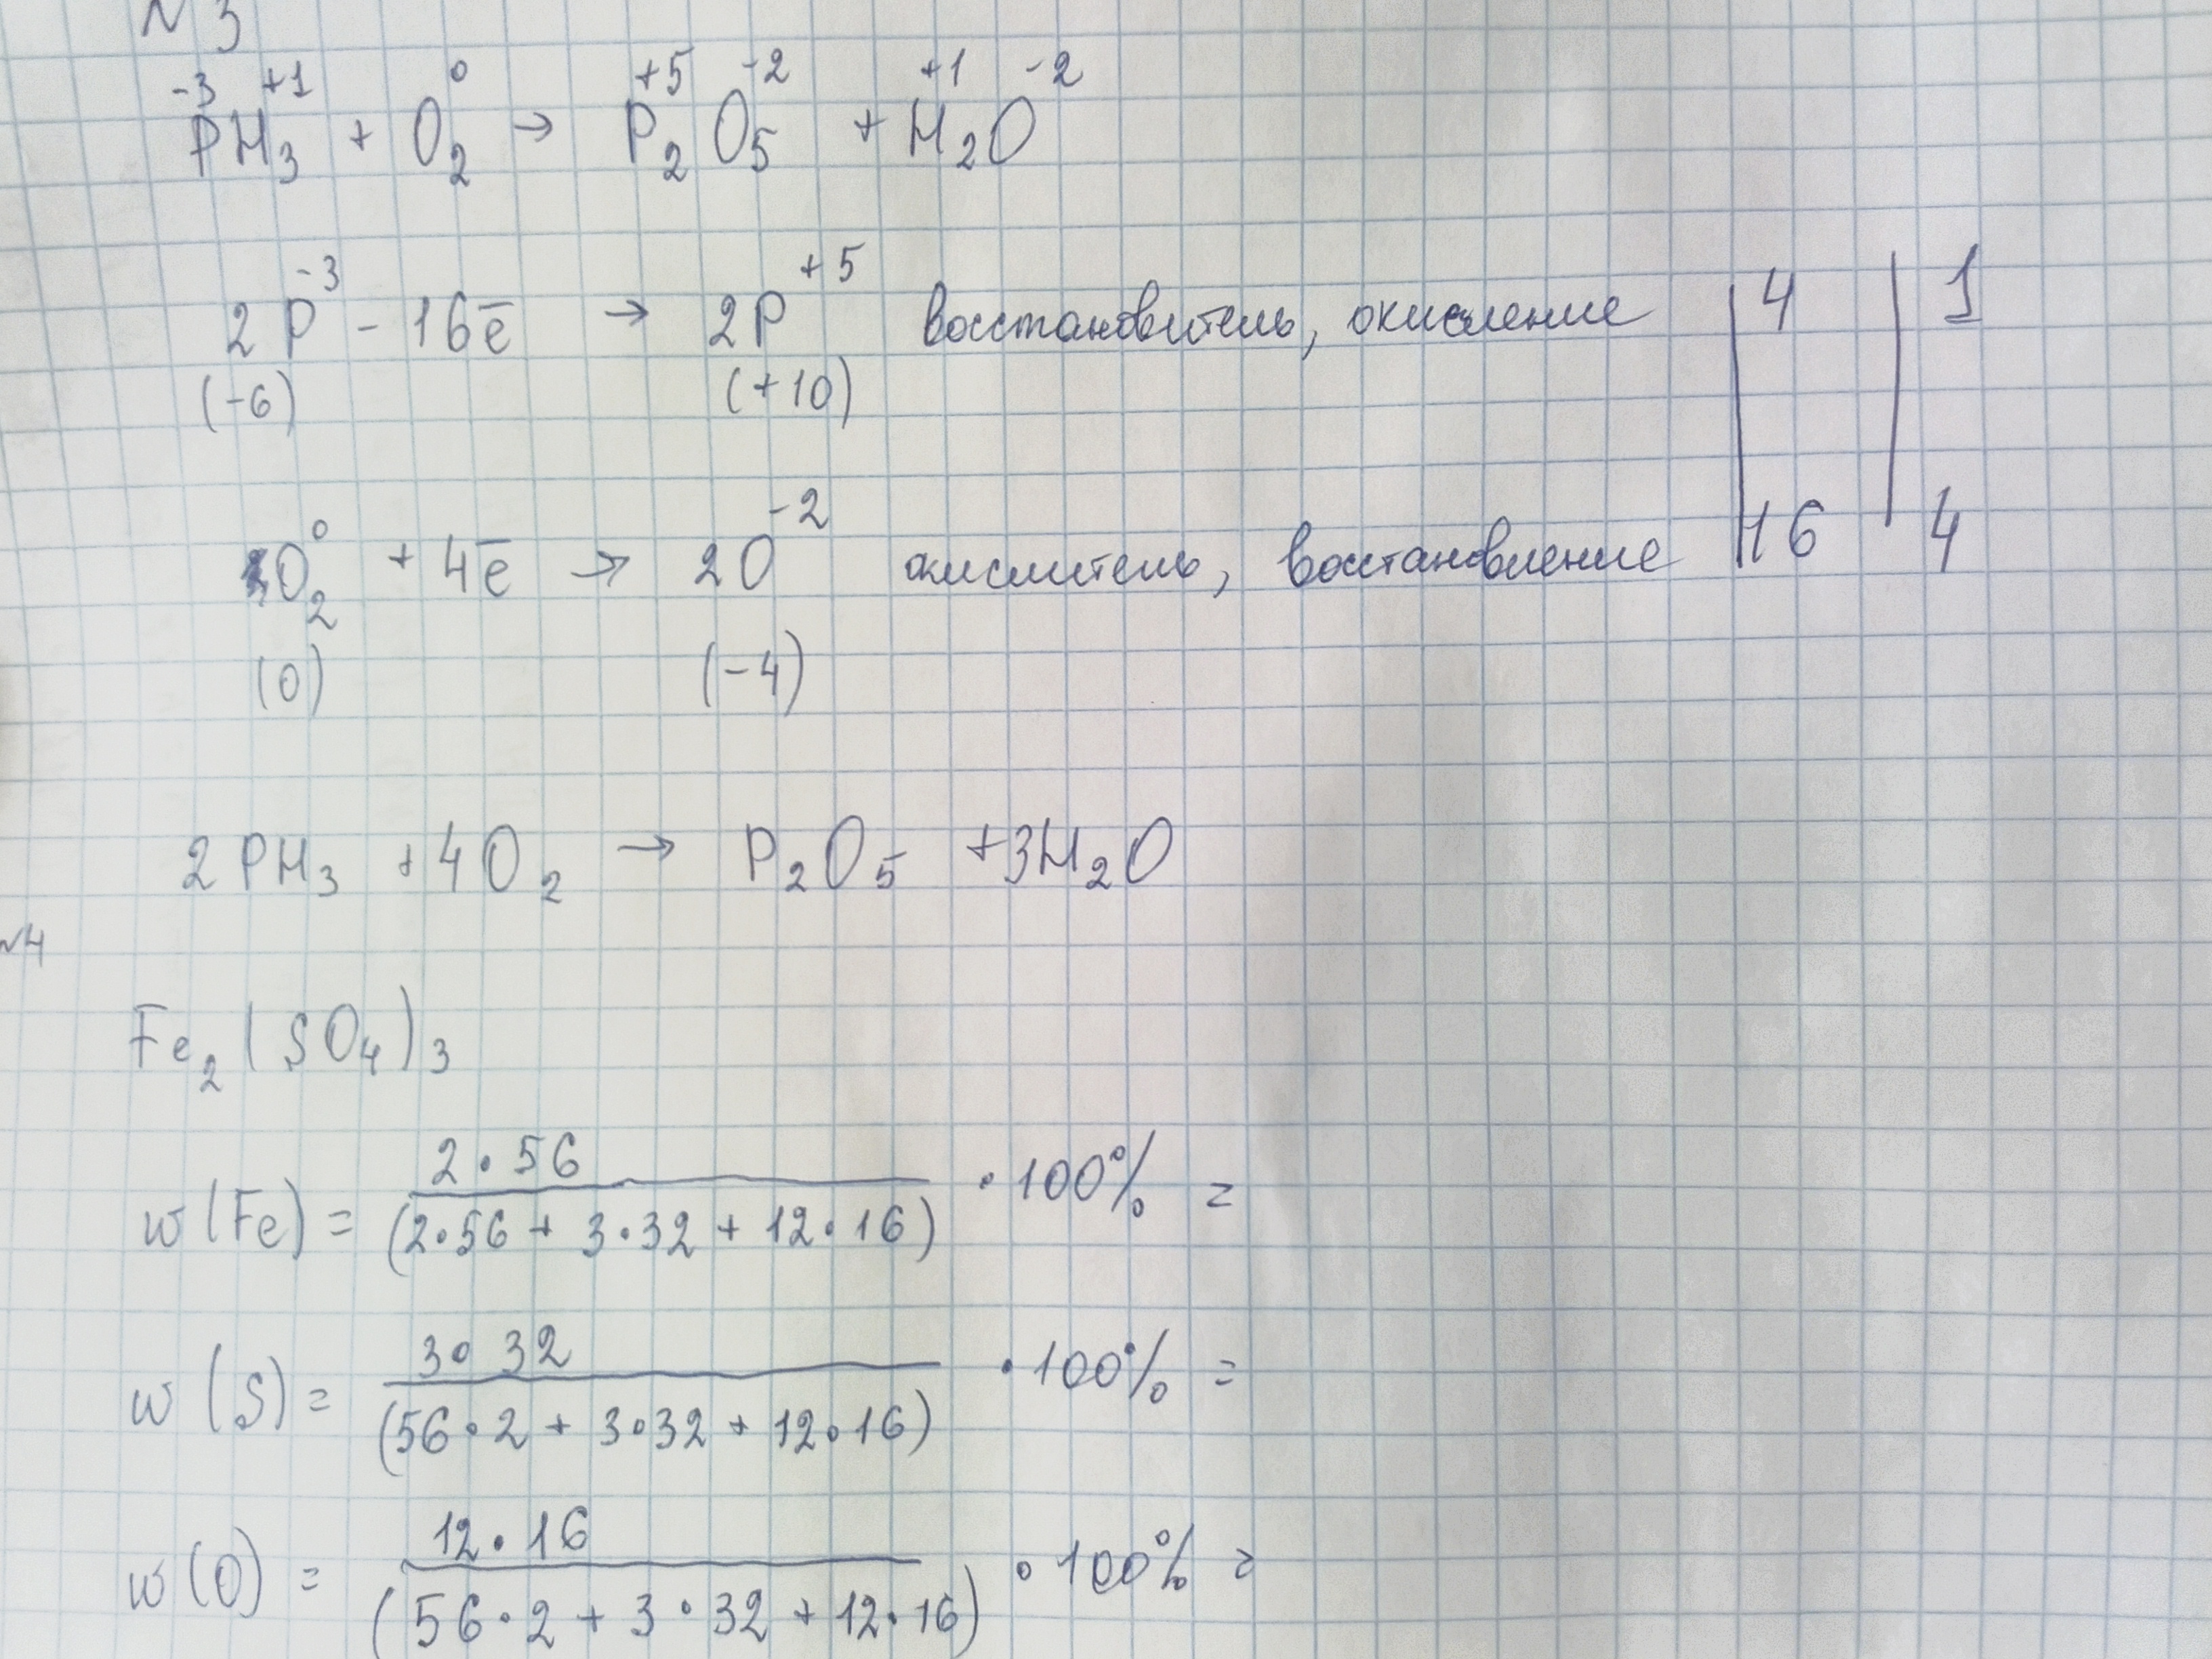 №3
-3 +1 0 +5 -2 +1 -2
PH₃ + O₂ → P₂O₅ + H₂O
2P⁻³ - 16ē → 2P⁺⁵ восстановитель, окисление | 4 | 1
(-6) (+10)
O₂⁰ + 4ē → 2O⁻² окислитель, восстановление | 16 | 4
(0) (-4)
2PH₃ + 4O₂ → P₂O₅ + 3H₂O
№4
Fe₂(SO₄)₃
w(Fe) = 2·56 / (2·56 + 3·32 + 12·16) · 100% =
w(S) = 3·32 / (56·2 + 3·32 + 12·16) · 100% =
w(O) = 12·16 / (56·2 + 3·32 + 12·16) · 100% =